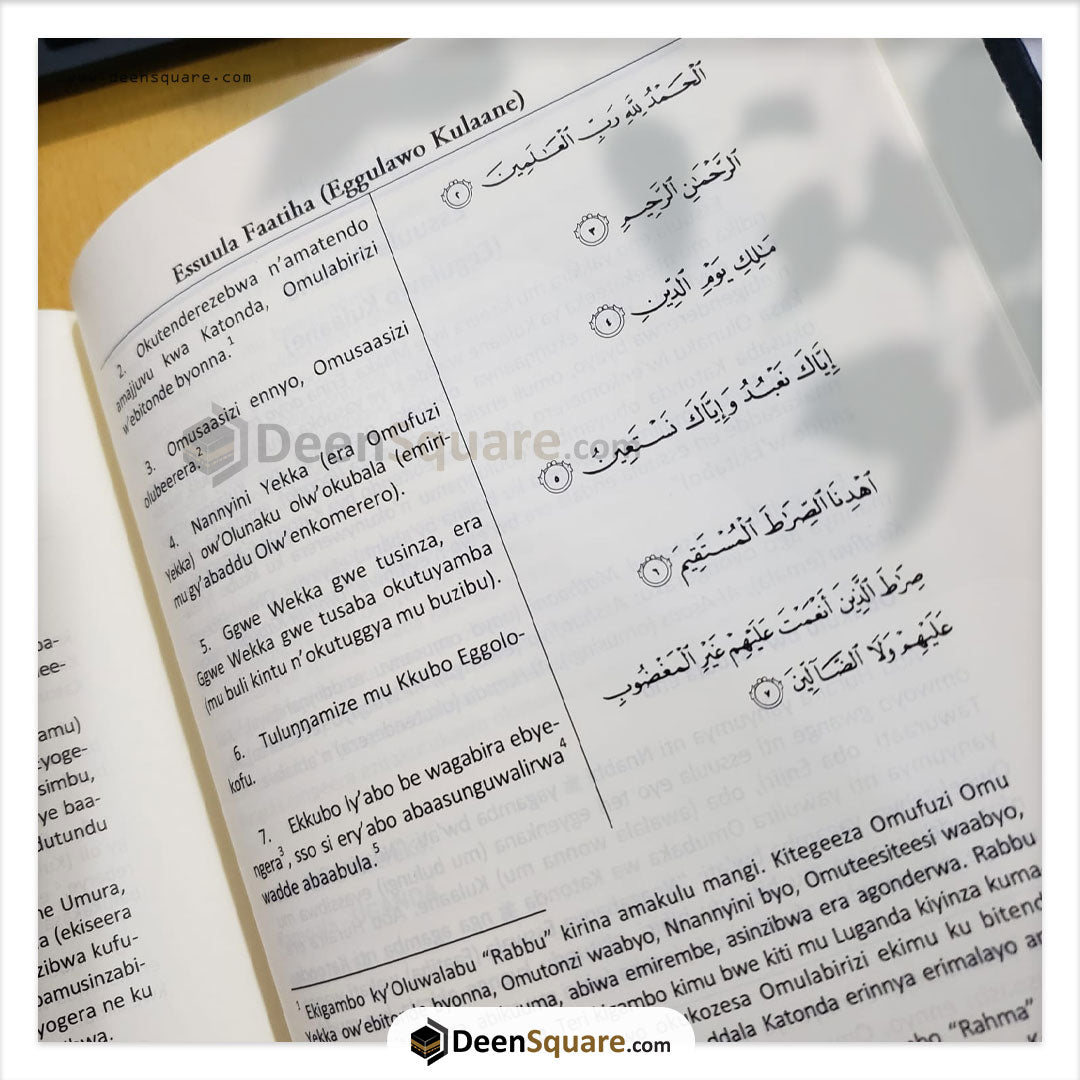 www.deensquare.com
Essuula Faatiha (Eggulawo Kulaane)
2. Okutenderezebwa n'amatendo
amajjuvu kwa Katonda, Omulabirizi
w'ebitonde byonna.1
3. Omusaasizi ennyo, Omusaasizi
olubeerera.2
4. Nannyini Yekka (era Omufuzi
Yekka) ow'Olunaku olw'okubala (emiri-
mu gy'abaddu Olw'enkomerero).
5. Ggwe Wekka gwe tusinza, era
Ggwe Wekka gwe tusaba okutuyamba
(mu buli kintu n'okutuggya mu buzibu).
6. Tuluŋŋamize mu Kkubo Eggolo-
kofu.
7. Ekkubo ly'abo be wagabira ebye-
ngera3, sso si ery'abo abaasunguwalirwa4
wadde abaabula.5
ٱلْحَمْدُ لِلَّهِ رَبِّ ٱلْعَٰلَمِينَ ٢
ٱلرَّحْمَٰنِ ٱلرَّحِيمِ ٣
مَٰلِكِ يَوْمِ ٱلدِّينِ ٤
إِيَّاكَ نَعْبُدُ وَإِيَّاكَ نَسْتَعِينُ ٥
ٱهْدِنَا ٱلصِّرَٰطَ ٱلْمُسْتَقِيمَ ٦
صِرَٰطَ ٱلَّذِينَ أَنْعَمْتَ عَلَيْهِمْ غَيْرِ ٱلْمَغْضُوبِ
عَلَيْهِمْ وَلَا ٱلضَّآلِّينَ ٧
1 Ekigambo ky'Oluwalabu "Rabbu" kirina amakulu mangi. Kitegeeza Omufuzi Omu
Yekka ow'ebitonde byonna, Omutonzi waabyo, Nnannyini byo, Omuteesiteesi waabyo,
abikuuma, abiwa emirembe, asinzibwa era agonderwa. Rabbu
Teri kigambo kimu bwe kiti mu Luganda kiyinza kuma
okukozesa Omulabirizi ekimu ku bitend
ddala Katonda erinnya erimalayo
"Rahma"
amu)
yoge-
simbu,
ye baa-
dutundu
ne Umura,
a (ekiseera
zibwa kufu-
bamusinzabi-
yogera ne ku
DeenSquare.com
DeenSquare.com